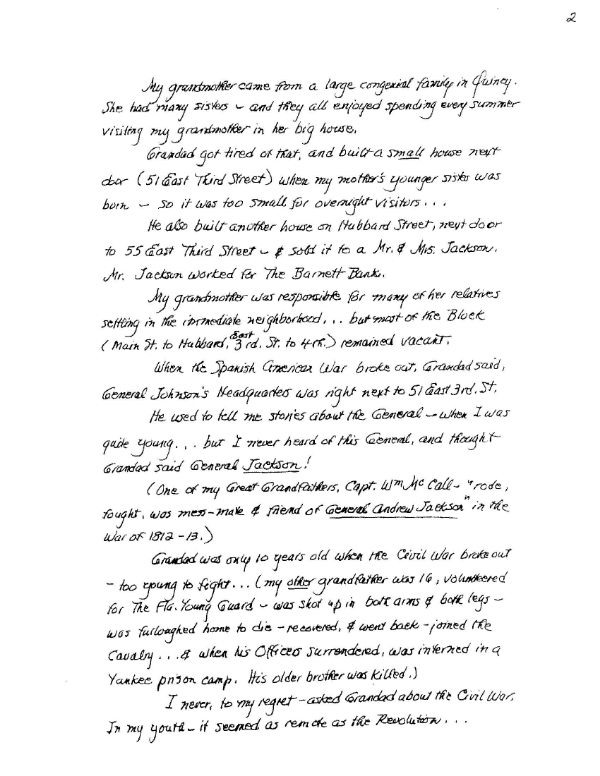 2
My grandmother came from a large congenial family in Quincy.
She had many sisters – and they all enjoyed spending every summer
visiting my grandmother in her big house.
Grandad got tired of that, and built a small house next
door (51 East Third Street) when my mother's younger sister was
born – so it was too small for overnight visitors...
He also built another house on Hubbard Street, next door
to 55 East Third Street – & sold it to a Mr. & Mrs. Jackson.
Mr. Jackson worked for The Barnett Bank.
My grandmother was responsible for many of her relatives
settling in the immediate neighborhood... but most of the Block
(Main St. to Hubbard, East 3rd. St. to 4th.) remained vacant.
When the Spanish American War broke out, Grandad said,
General Johnson's Headquarters was right next to 51 East 3rd. St.
He used to tell me stories about the General – when I was
quite young... but I never heard of this General, and thought
Grandad said General Jackson!
(One of my Great Grandfathers, Capt. Wm McCall – "rode,
fought, was mess-mate & friend of General Andrew Jackson" in the
War of 1812-13.)
Grandad was only 10 years old when the Civil War broke out
– too young to fight... (my other grandfather was 16, volunteered
for The Fla. Young Guard – was shot up in both arms & both legs –
was furloughed home to die – recovered, & went back – joined the
Cavalry... & when his Officers surrendered, was interned in a
Yankee prison camp. His older brother was killed.)
I never, to my regret – asked Grandad about the Civil War.
In my youth – it seemed as remote as the Revolution...